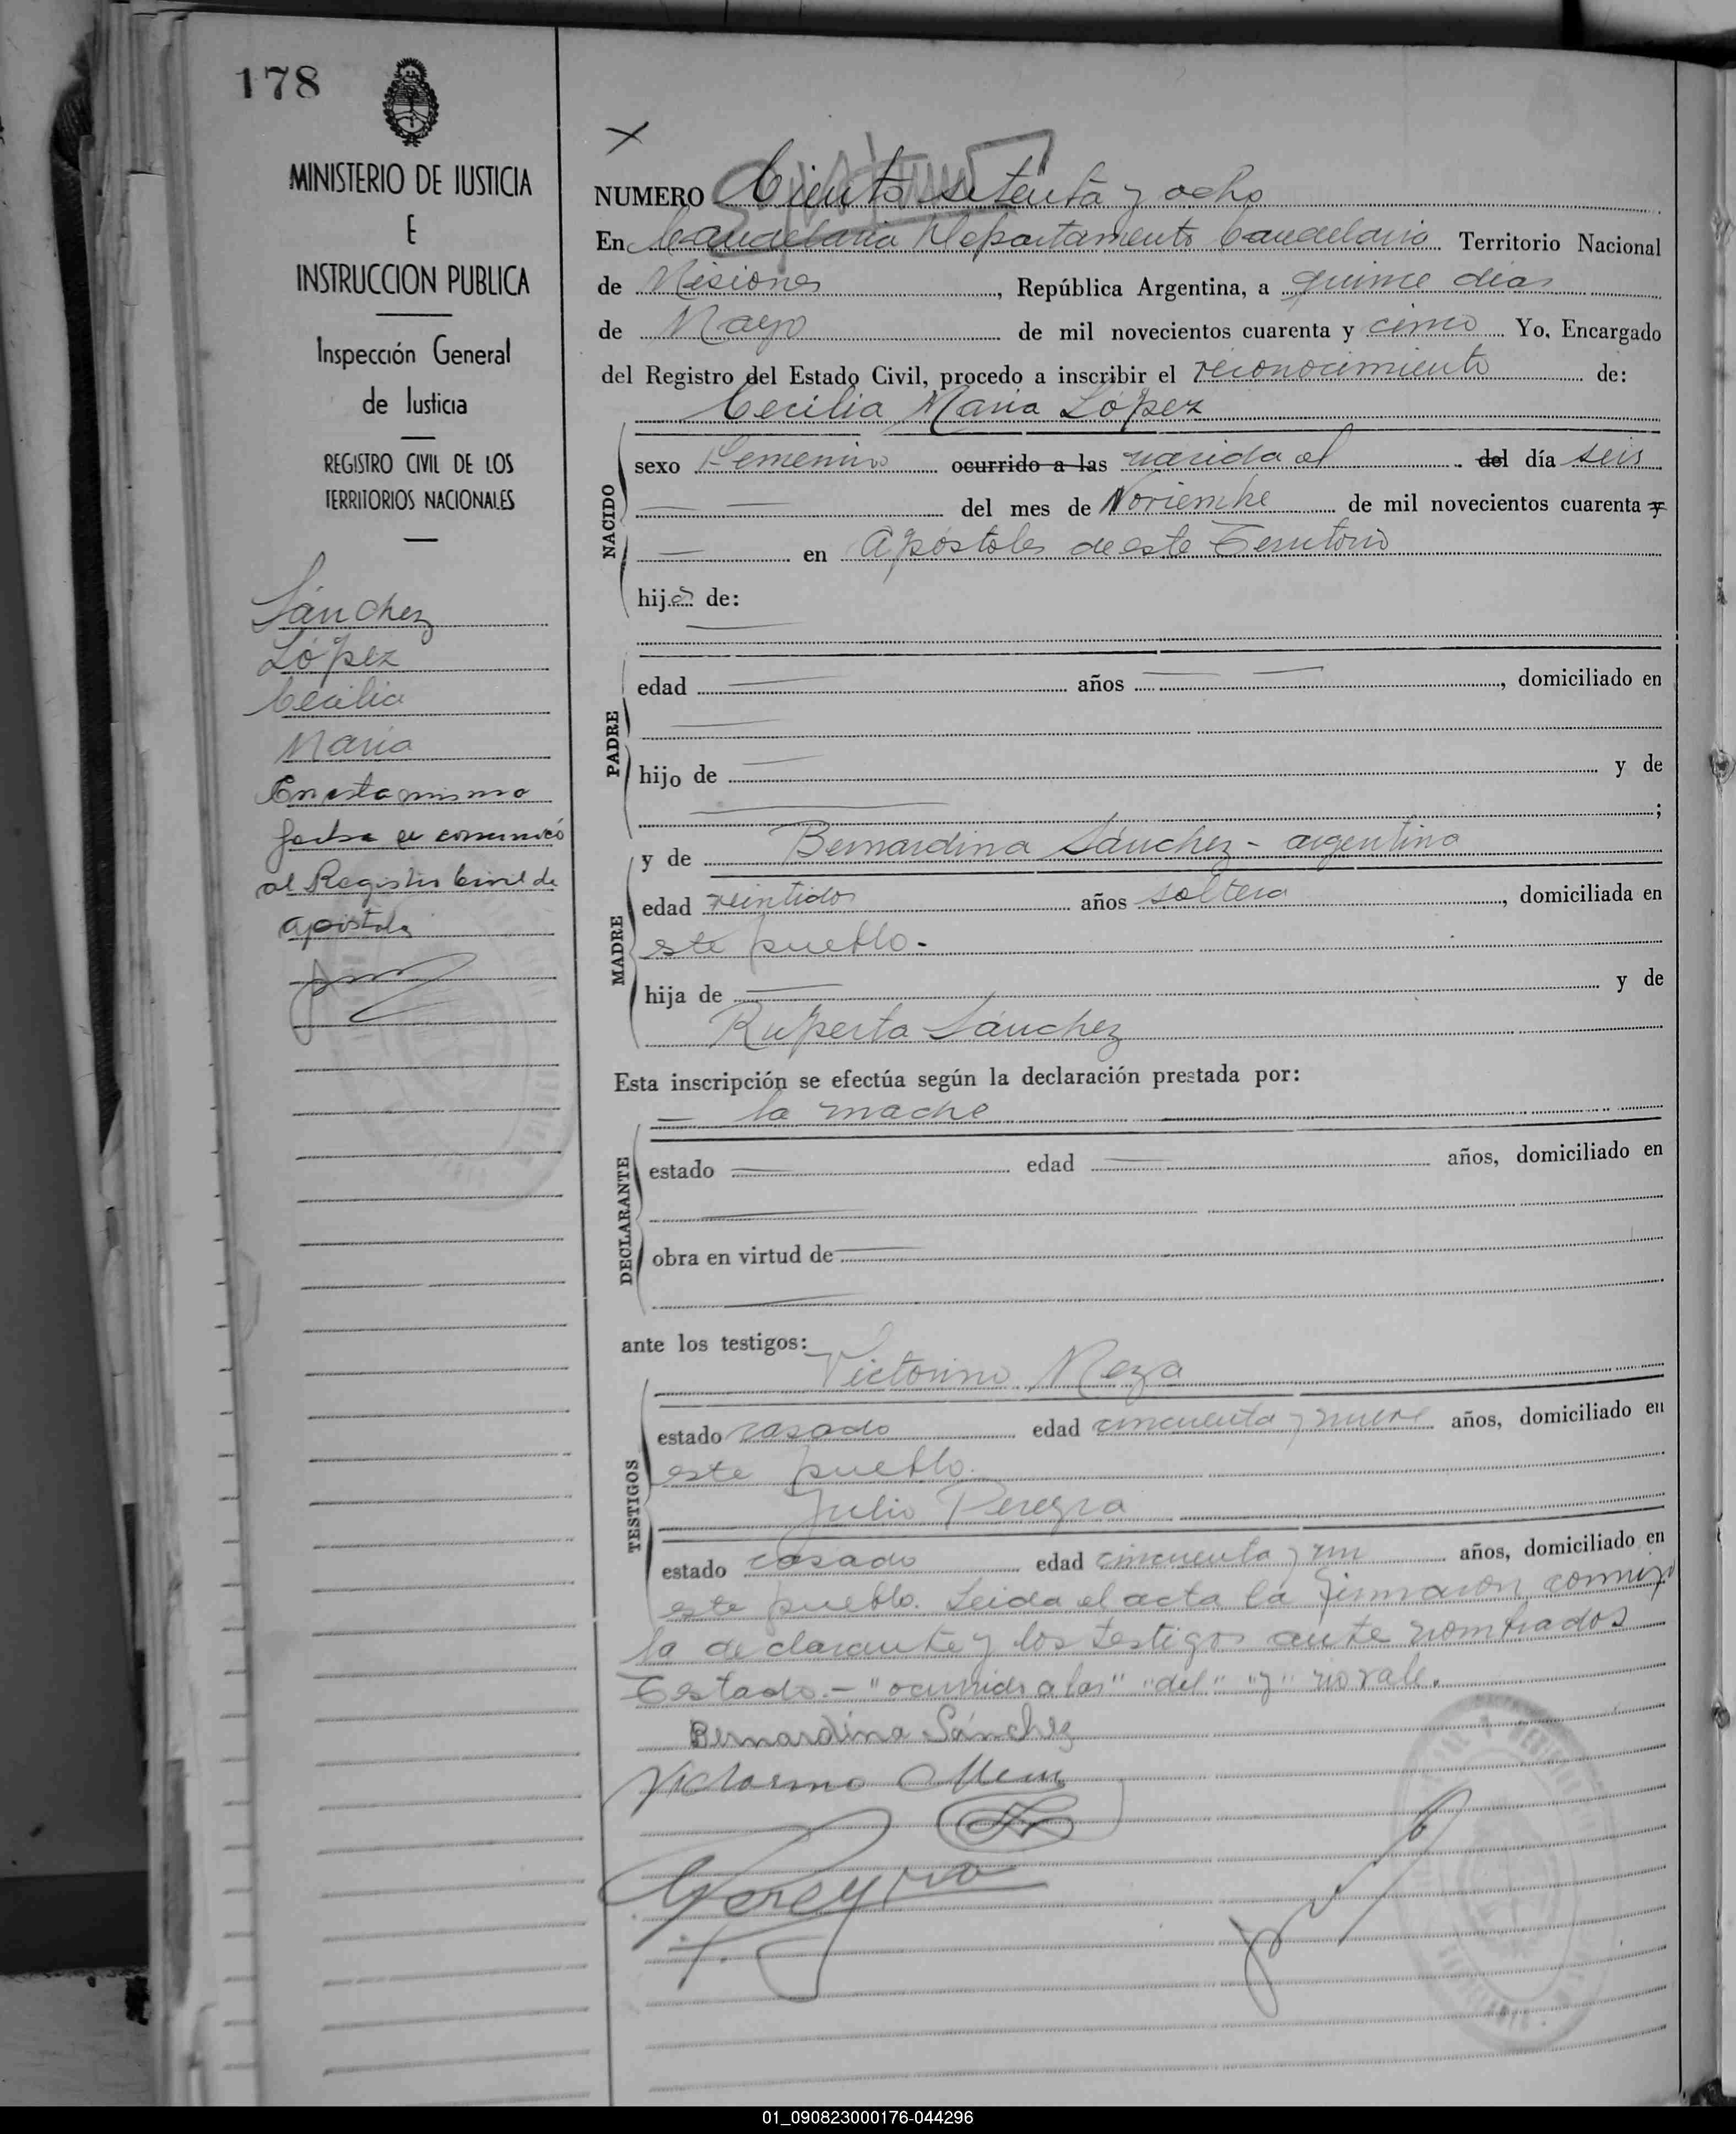 178
MINISTERIO DE JUSTICIA
E
INSTRUCCION PUBLICA
Inspección General
de Justicia
REGISTRO CIVIL DE LOS
TERRITORIOS NACIONALES
Sánchez
López
Cecilia
María
En esta misma
fecha se comunicó
al Registro Civil de
Apóstoles
NUMERO Ciento setenta y ocho
En Candelaria Departamento Candelaria Territorio Nacional
de Misiones, República Argentina, a quince días
de Mayo de mil novecientos cuarenta y cinco Yo, Encargado
del Registro del Estado Civil, procedo a inscribir el reconocimiento de:
Cecilia María López
NACIDO
sexo Femenino ocurrido a las nacida el del día seis
del mes de Noviembre de mil novecientos cuarenta y
en Apóstoles de este Territorio
hija de:
PADRE
edad años , domiciliado en
hijo de y de
;
MADRE
y de Bernardina Sánchez - argentina
edad veintidos años soltera, domiciliada en
este pueblo.-
hija de y de
Ruperta Sánchez
Esta inscripción se efectúa según la declaración prestada por:
la madre
DECLARANTE
estado edad años, domiciliado en
obra en virtud de
ante los testigos:
Victorino Meza
TESTIGOS
estado casado edad cincuenta y nueve años, domiciliado en
este pueblo.
Julio Pereyra
estado casado edad cincuenta y un años, domiciliado en
este pueblo. Leida el acta la firmaron conmigo
la declarante y los testigos ante nombrados
Testado.- "ocurrido a las" "del" "y" no vale.
Bernardina Sánchez
Victorino Meza
Pereyra
01_090823000176-044296